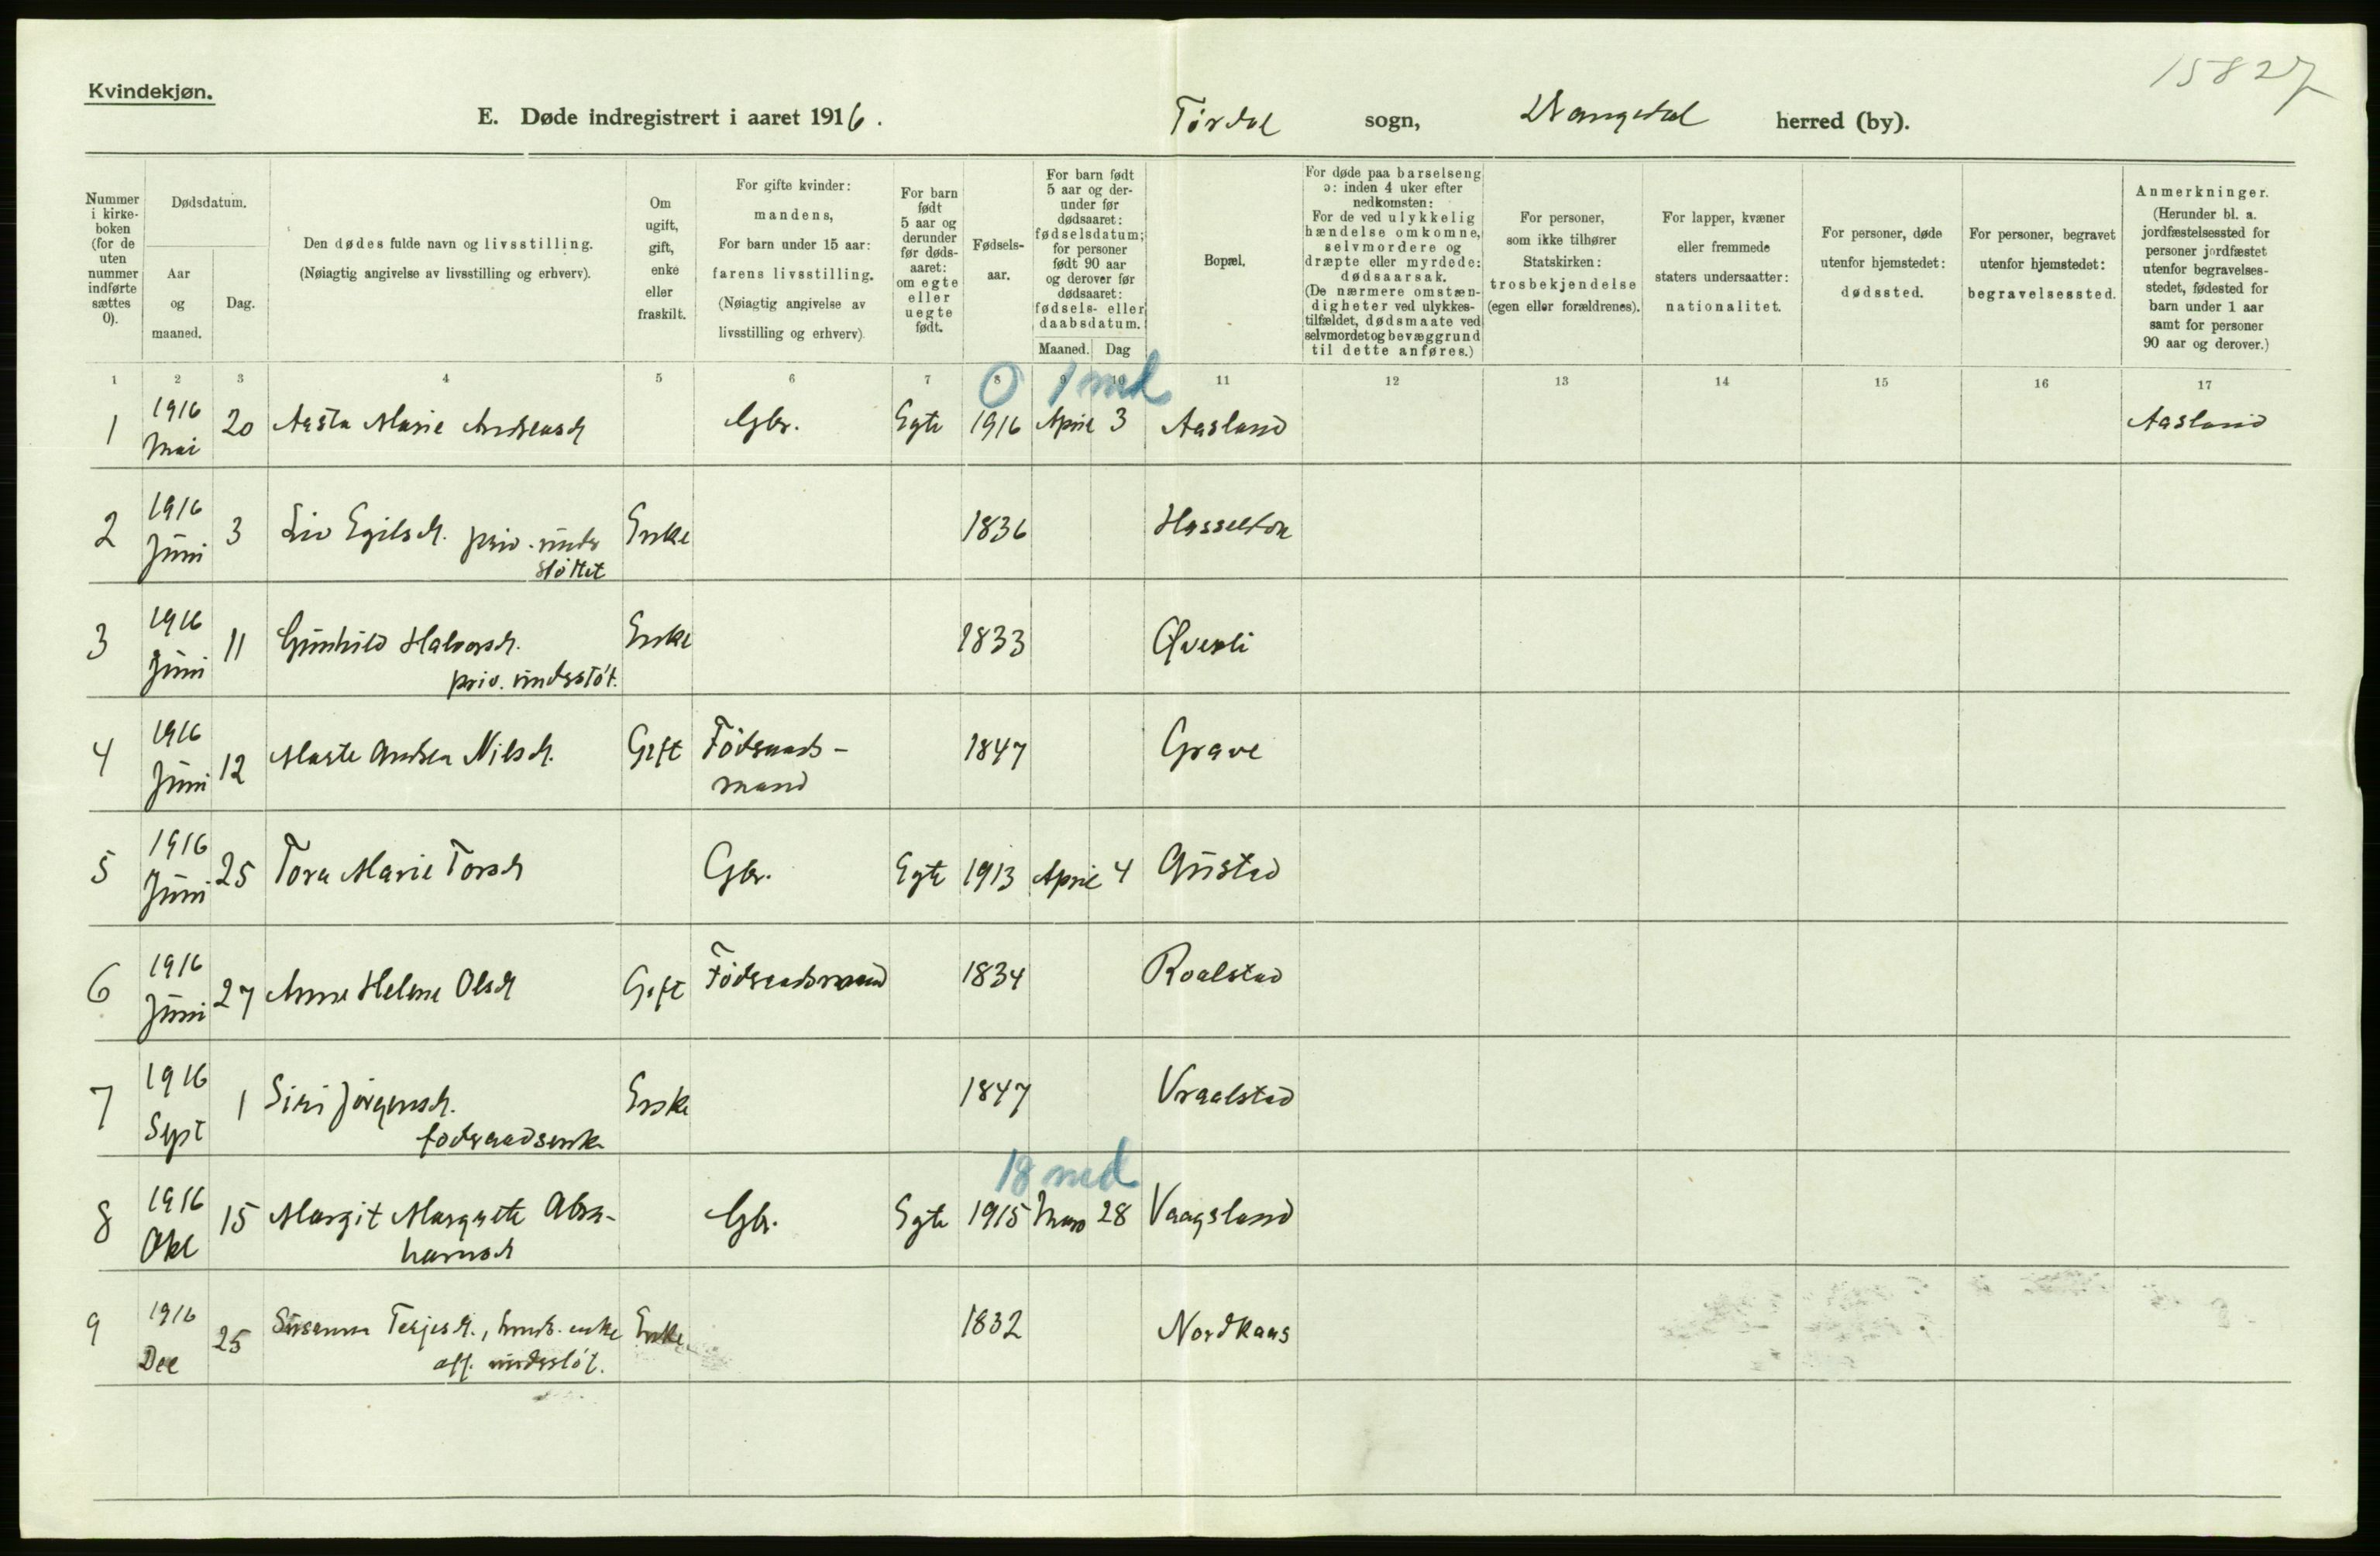 15827
Kvindekjøn.
E. Døde indregistrert i aaret 1916. Tørdal sogn, Drangedal herred (by).
Nummer i kirke- boken (for de uten nummer indførte sættes 0).
Dødsdatum.
Aar og maaned.
Dag.
Den dødes fulde navn og livsstilling.
(Nøiagtig angivelse av livsstilling og erhverv).
Om ugift, gift, enke eller fraskilt.
For gifte kvinder:
mandens,
For barn under 15 aar:
farens livsstilling.
(Nøiagtig angivelse av
livsstilling og erhverv).
For barn født 5 aar og derunder før døds- aaret: om egte eller uegte født.
Fødsels- aar.
For barn født 5 aar og der- under før dødsaaret: fødselsdatum; for personer født 90 aar og derover før dødsaaret: fødsels- eller daabsdatum.
Maaned. Dag
Bopæl.
For døde paa barselseng ɔ: inden 4 uker efter nedkomsten:
For de ved ulykkelig hændelse omkomne, selvmordere og dræpte eller myrdede: dødsaarsak.
(De nærmere omstæn- digheter ved ulykkes- tilfældet, dødsmaate ved selvmordet og bevæggrund til dette anføres.)
For personer, som ikke tilhører Statskirken: trosbekjendelse (egen eller forældrenes).
For lapper, kvæner eller fremmede staters undersaatter: nationalitet.
For personer, døde utenfor hjemstedet: dødssted.
For personer, begravet utenfor hjemstedet: begravelsessted.
Anmerkninger.
(Herunder bl. a. jordfæstelsessted for personer jordfæstet utenfor begravelses- stedet, fødested for barn under 1 aar samt for personer 90 aar og derover.)
1 2 3 4 5 6 7 8 9 10 11 12 13 14 15 16 17
0 1 md
1 1916 Mai 20 Aasta Marie Andreasd Gbr. Egte 1916 April 3 Aasland Aasland
2 1916 Juni 3 Liv Egilsd. priv. under Enke 1836
støttet
3 1916 Juni 11 Gunhild Halvorsd. Enke 1833 Øverli
priv. understøt.
4 1916 Juni 12 Marte Andrea Nilsd. Gift Föderaads- 1847 Grave
mand
5 1916 Juni 25 Tora Marie Torsd Gbr. Egte 1913 April 4 Gustad
6 1916 Juni 27 Anne Helene Olsd Gift Föderaadsmand 1834 Roalstad
7 1916 Sept 1 Siri Jörgensd. Enke 1847 Vraalstad
föderaadsenke
18 md
8 1916 Okt 15 Margit Margrete Abra- Gbr. Egte 1915 Mars 28 Vaagsland
hamsd
9 1916 Dec 25 Susanna Terjesd., enke Enke 1832 Nordkaas
off. understöt.